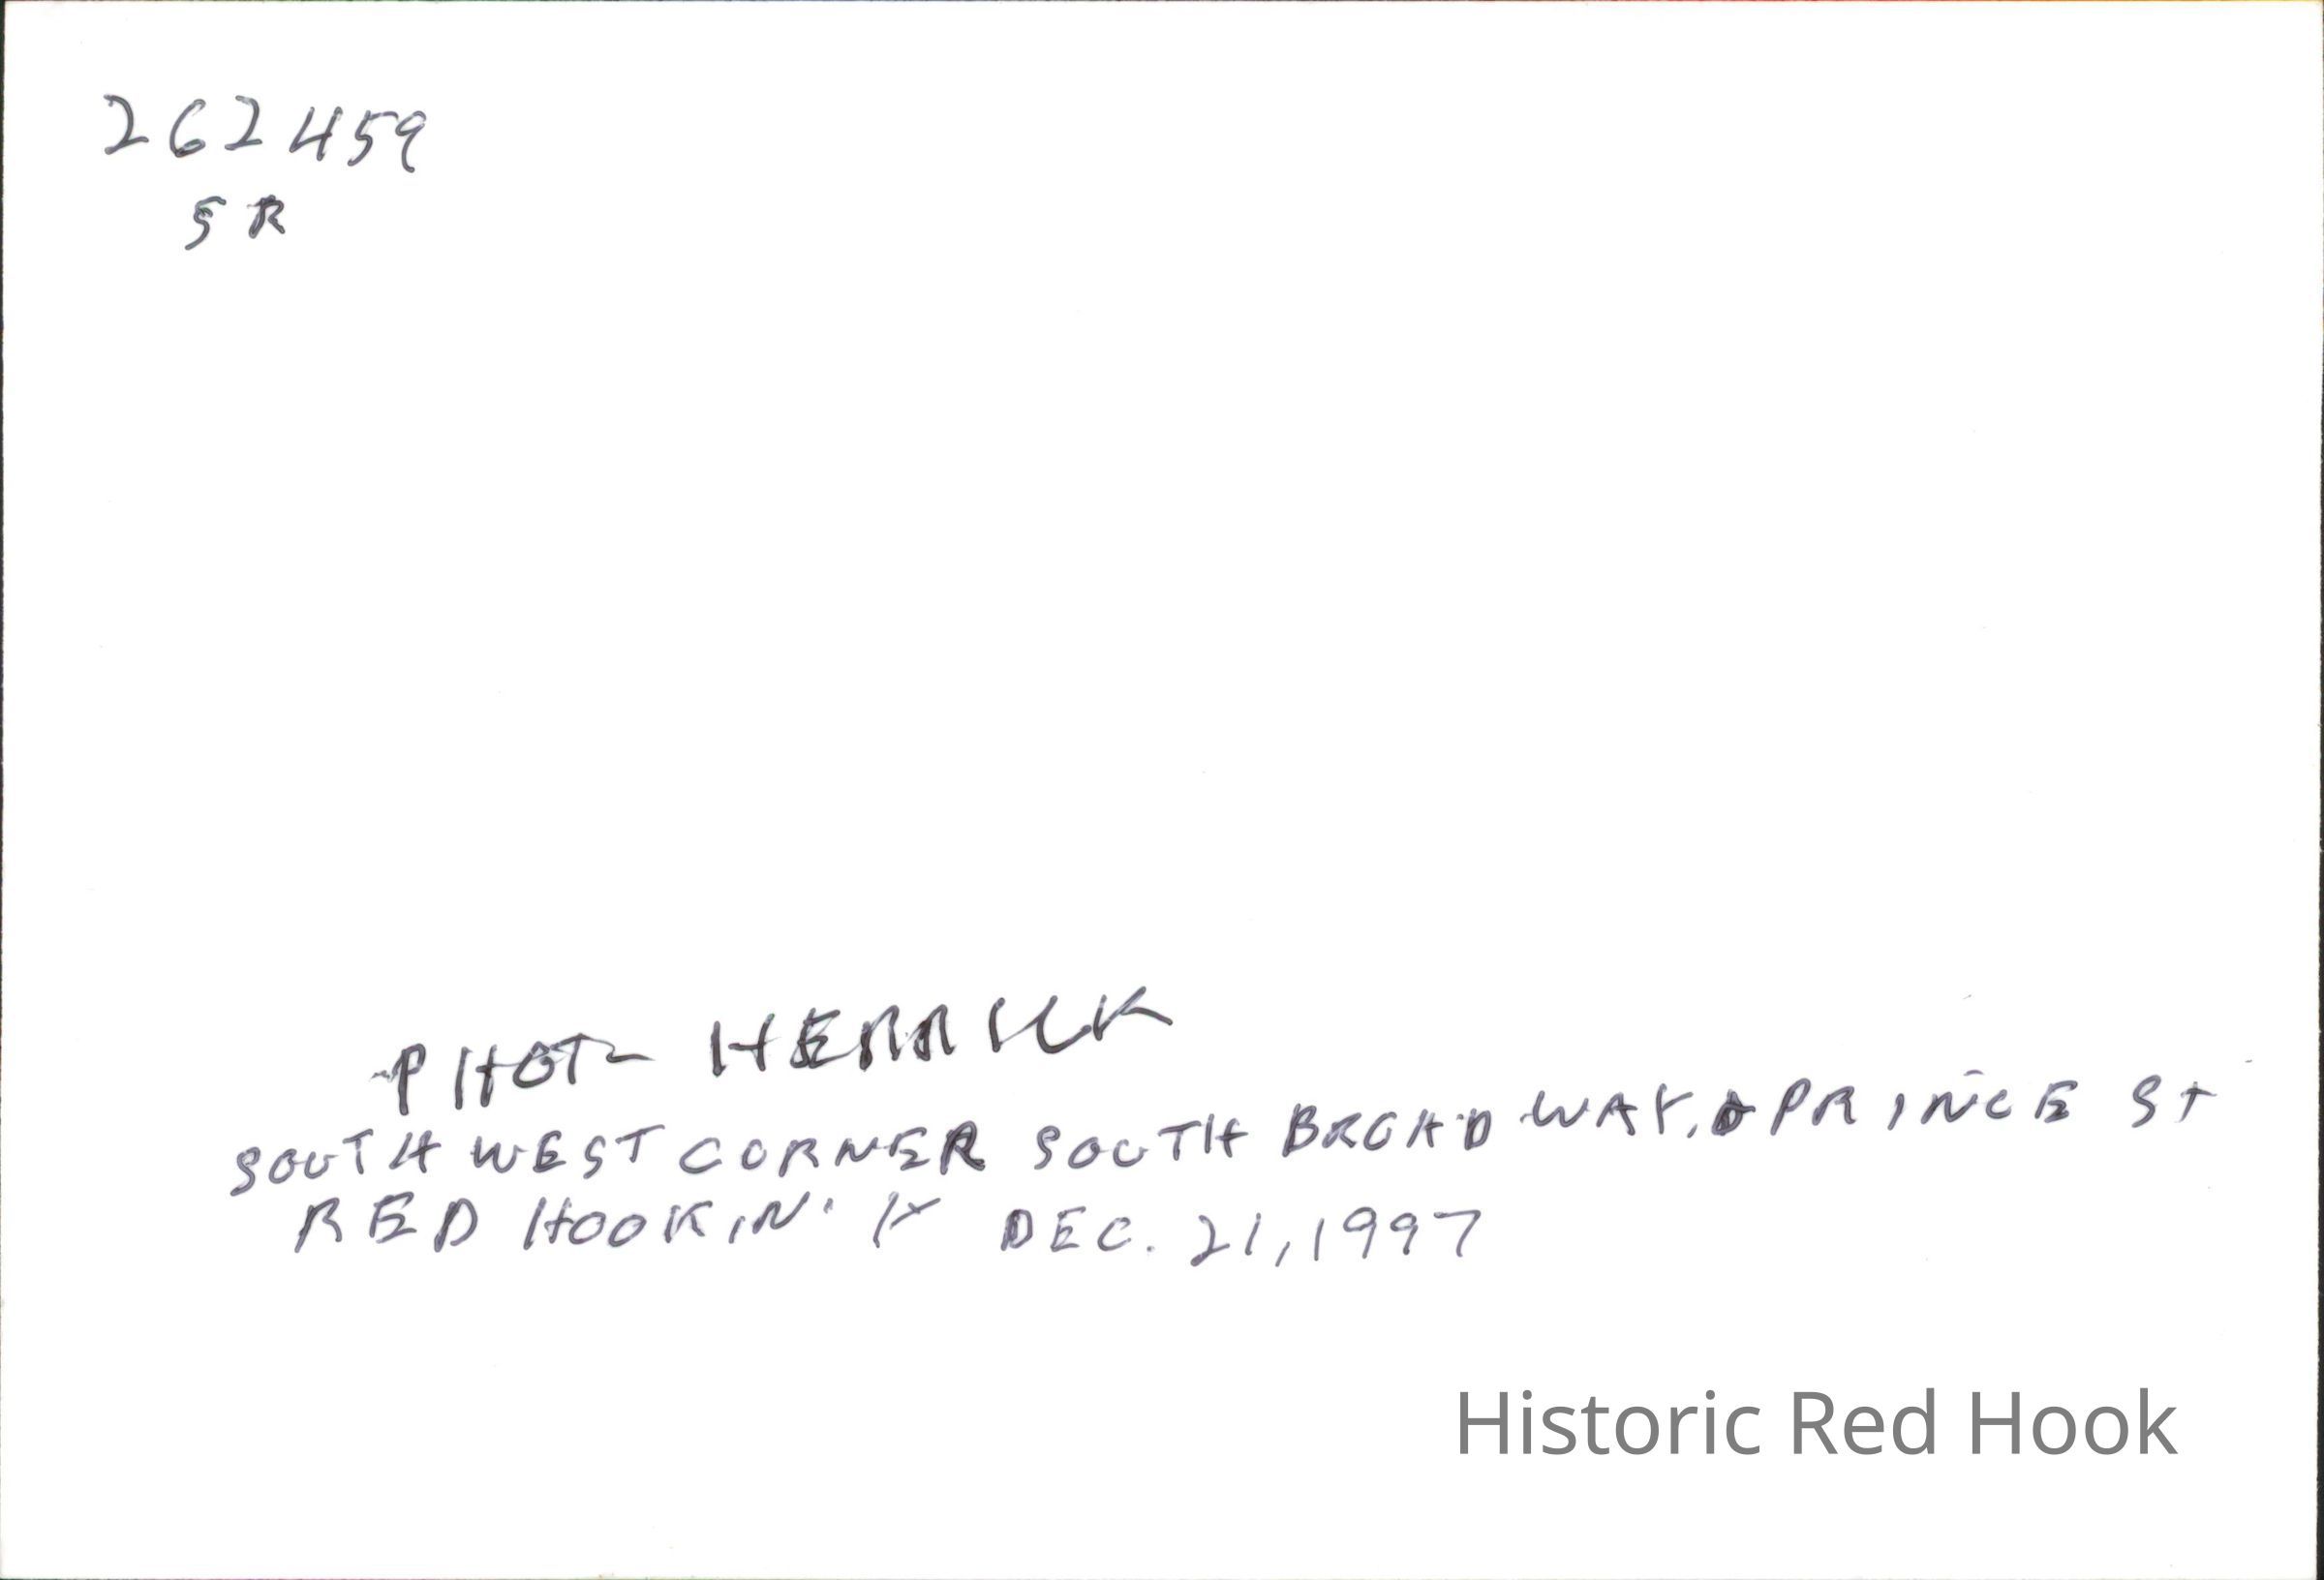 262459
SR
PHOTO HERRICK
SOUTH WEST CORNER SOUTH BROADWAY, & PRINCE ST
RED HOOK, N. Y DEC. 21, 1997
Historic Red Hook